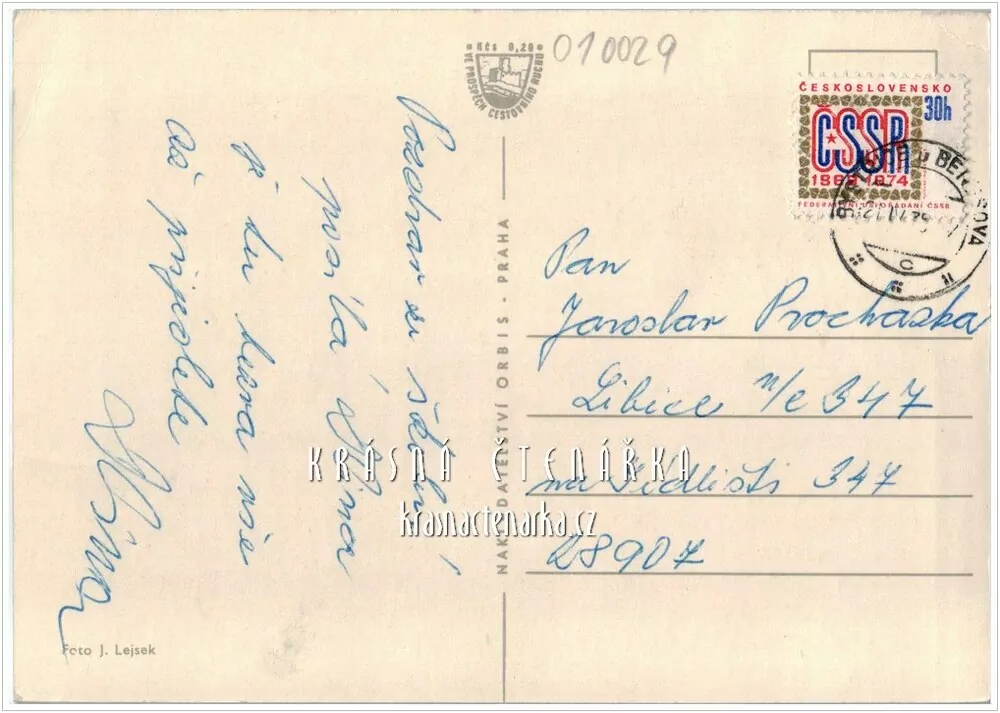 Kčs 0,20
VE PROSPĚCH CESTOVNÍHO RUCHU
010029
ČESKOSLOVENSKO
30h
ČSSR
1969 1974
FEDERATIVNÍ USPOŘÁDÁNÍ ČSSR
u BENEŠOVA
c
Pozdrav ze
posílá
je tu
až přijedete
NAKLADATELSTVÍ ORBIS - PRAHA
Pan
Jaroslav Prochaska
Libice n/c 347
na Sídlišti 347
28907
KRÁSNÁ ČTENÁŘKA
krasnactenarka.cz
Foto J. Lejsek